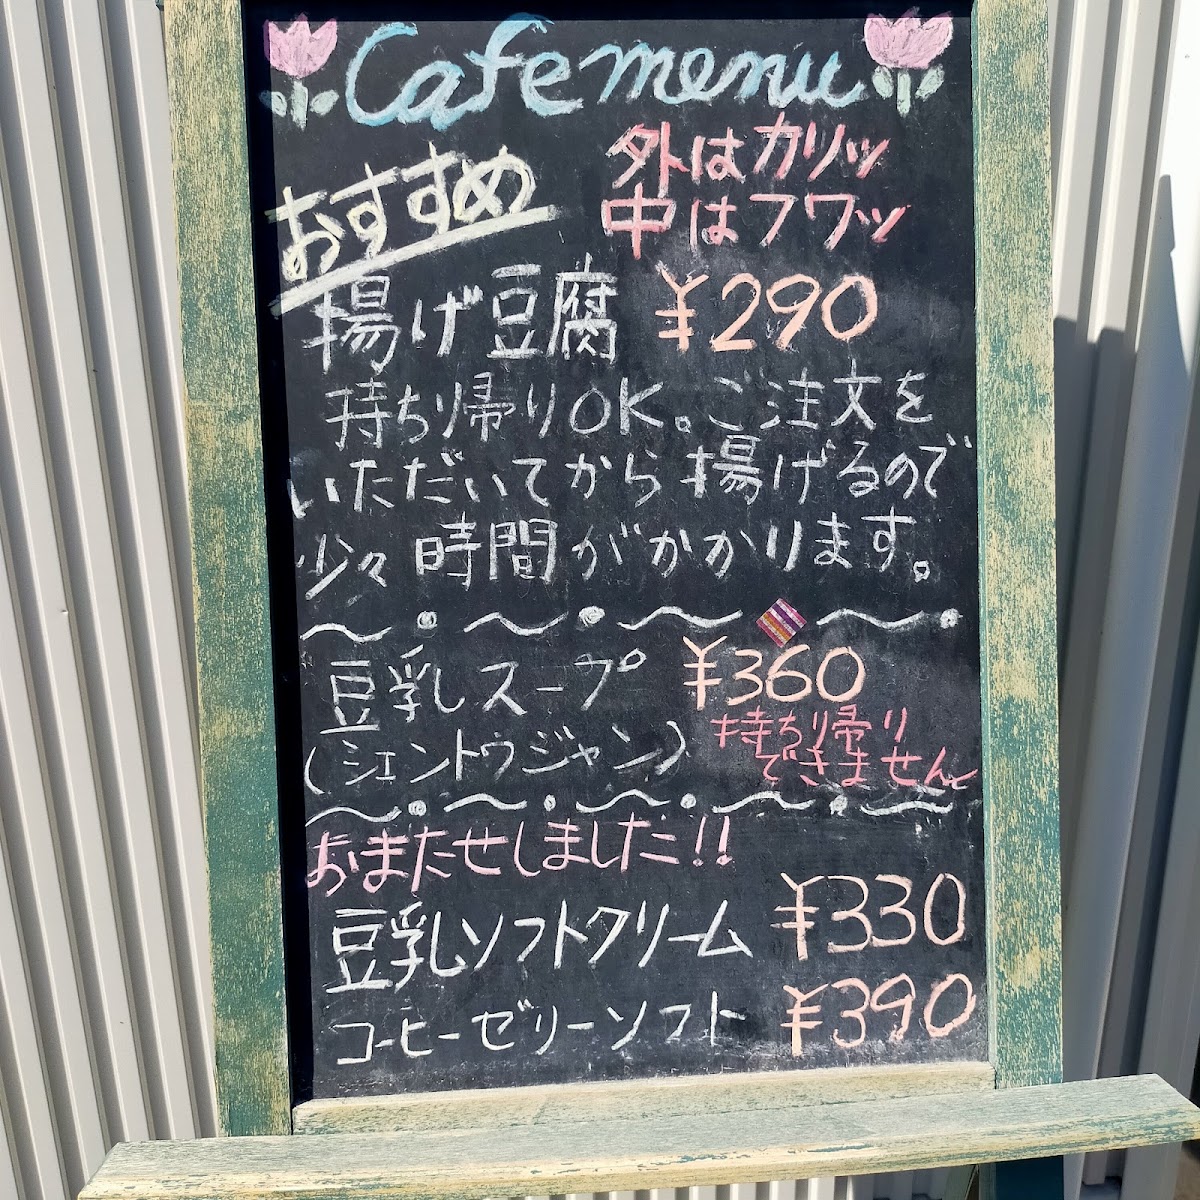 Cafe menu
おすすめ
外はカリッ
中はフワッ
揚げ豆腐 ¥290
持ち帰りOK。ご注文を
いただいてから揚げるので
少々時間がかかります。
豆乳スープ ¥360
(シェントウジャン)
持ち帰り
できません
おまたせしました!!
豆乳ソフトクリーム ¥330
コーヒーゼリーソフト ¥390